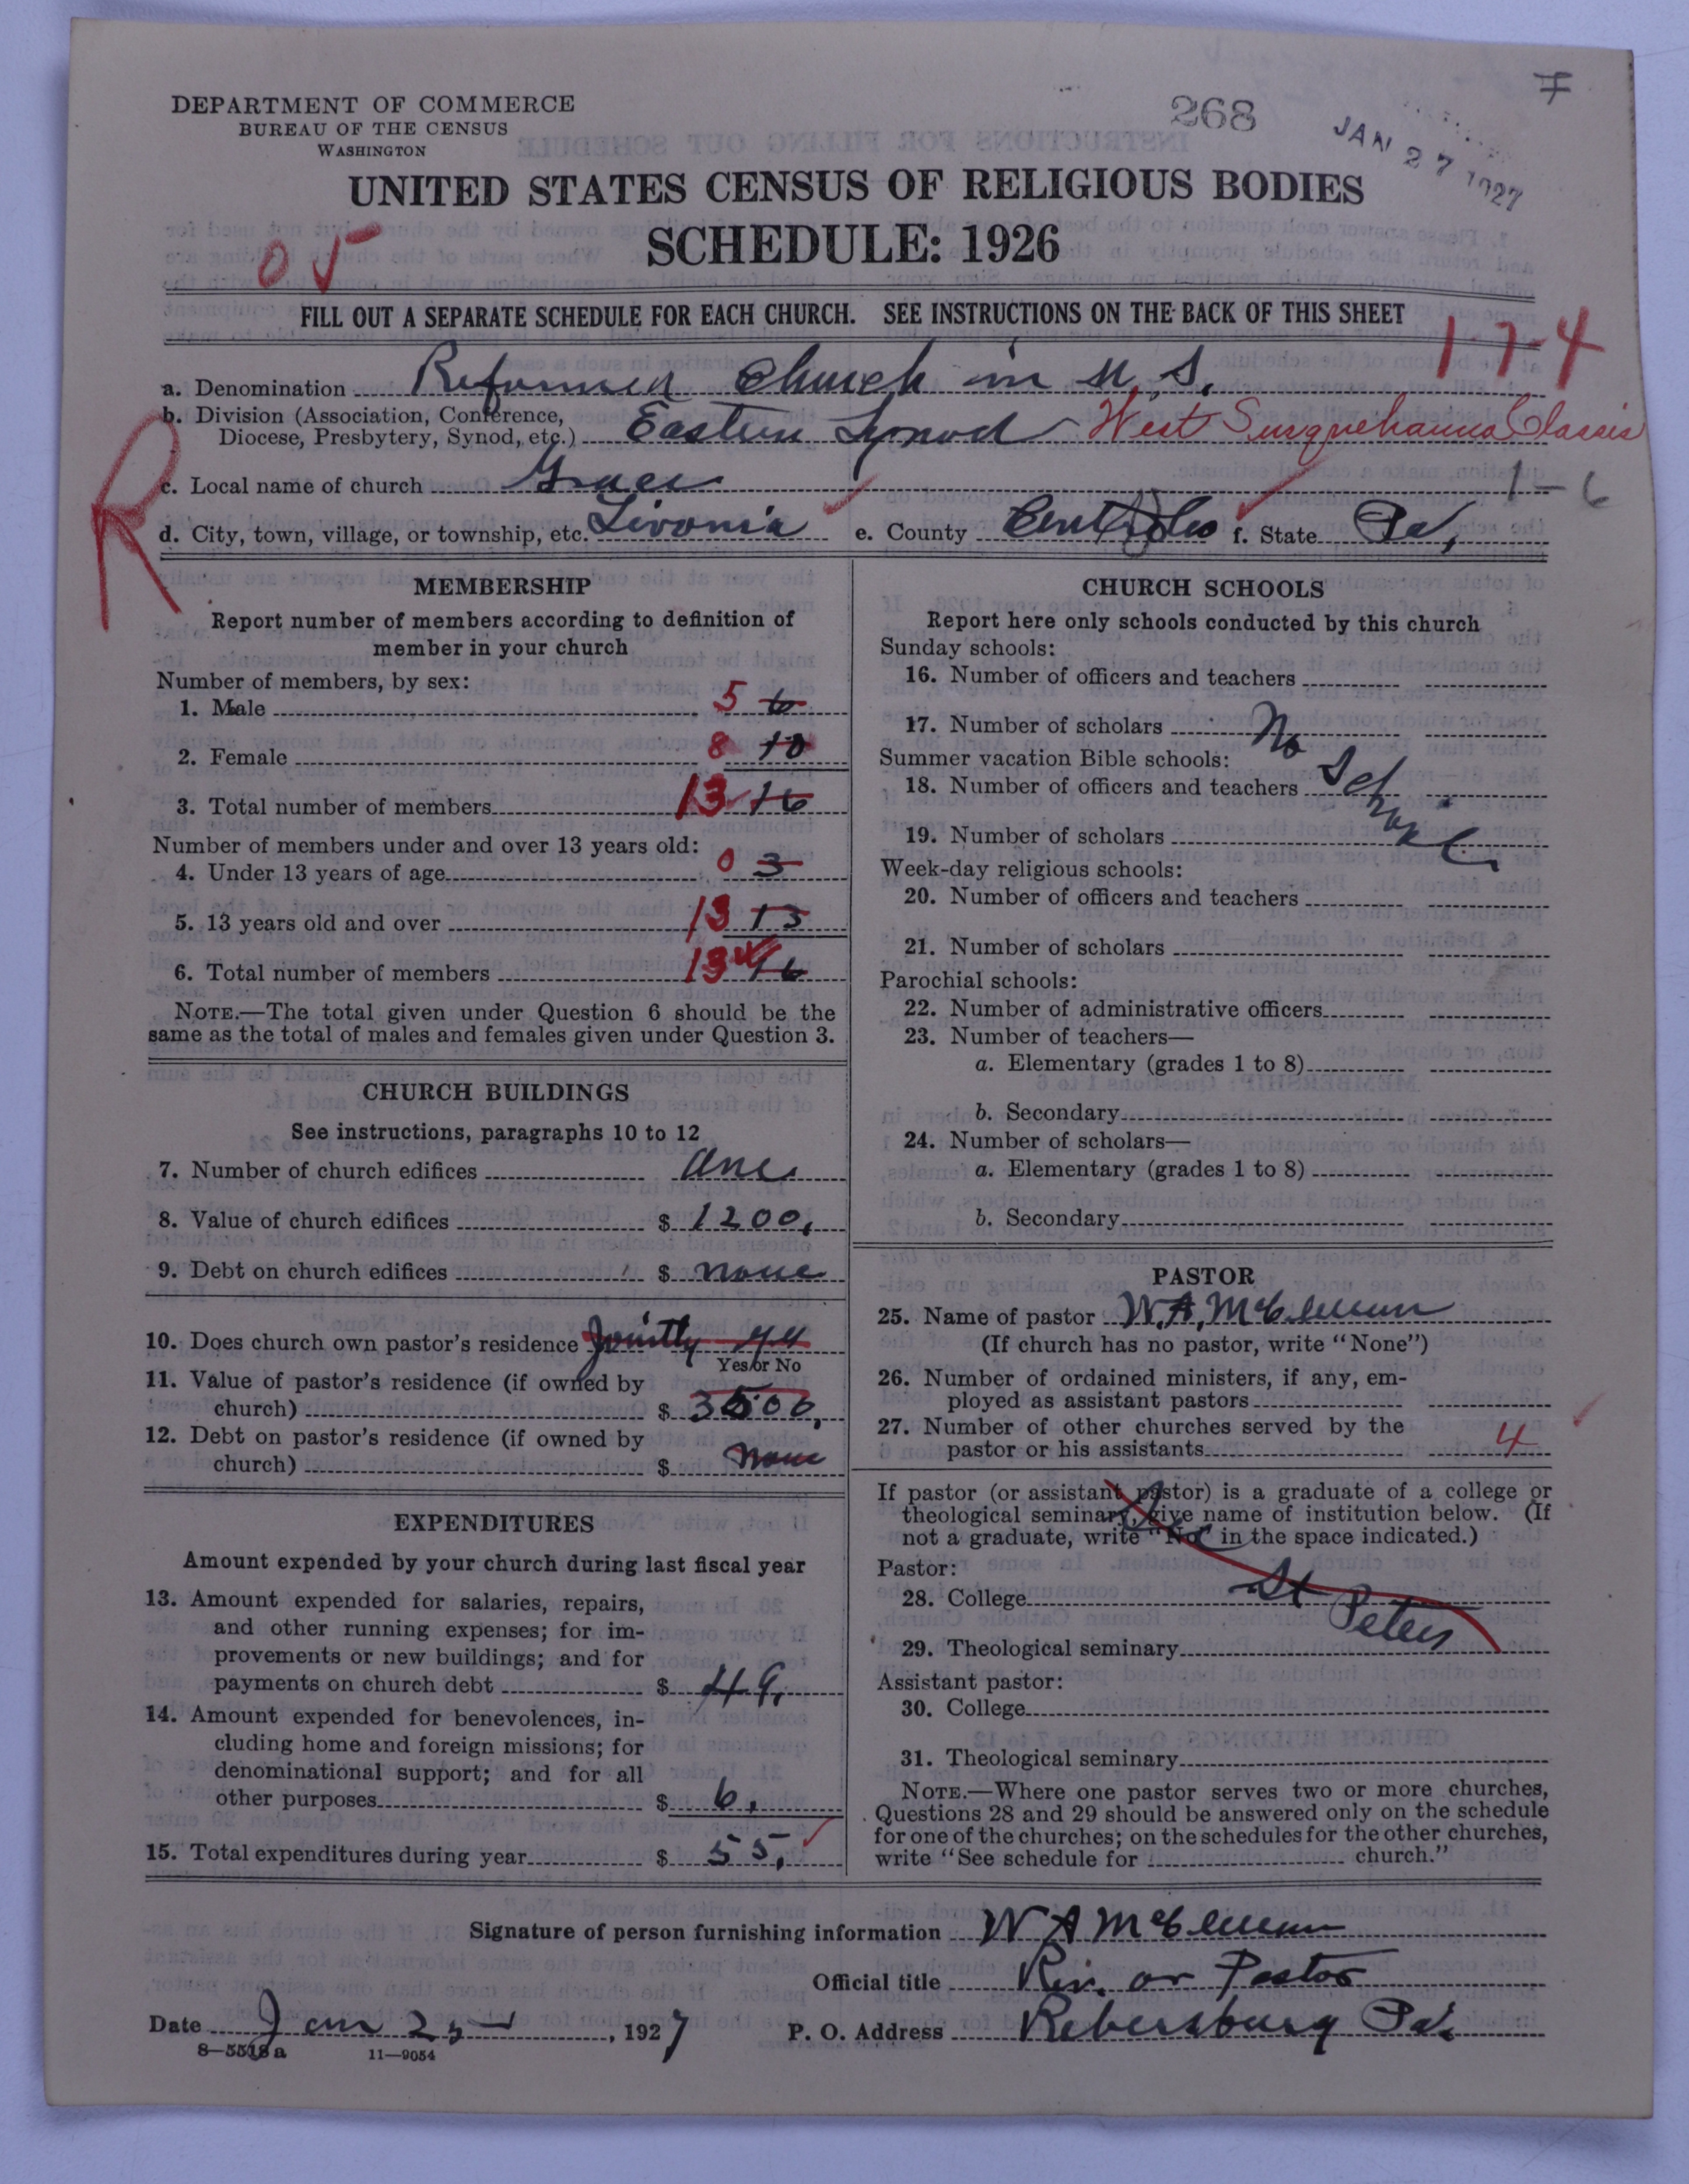 DEPARTMENT OF COMMERCE
BUREAU OF THE CENSUS
WASHINGTON
268
JAN 27 1927
UNITED STATES CENSUS OF RELIGIOUS BODIES
SCHEDULE: 1926
05
FILL OUT A SEPARATE SCHEDULE FOR EACH CHURCH. SEE INSTRUCTIONS ON THE BACK OF THIS SHEET
1-7-4
a. Denomination Reformed Church in U. S.
b. Division (Association, Conference,
Diocese, Presbytery, Synod, etc.) Eastern Synod West Susquehanna Classis
R
c. Local name of church Grace
1-6
d. City, town, village, or township, etc. Livonia e. County Centre Co f. State Pa.
MEMBERSHIP
Report number of members according to definition of
member in your church
Number of members, by sex:
1. Male 5 6
2. Female 8 10
3. Total number of members 13 16
Number of members under and over 13 years old:
4. Under 13 years of age 0 3
5. 13 years old and over 13 13
6. Total number of members 13 16
NOTE.—The total given under Question 6 should be the
same as the total of males and females given under Question 3.
CHURCH BUILDINGS
See instructions, paragraphs 10 to 12
7. Number of church edifices One
8. Value of church edifices $ 1200.
9. Debt on church edifices $ none
10. Does church own pastor's residence Jointly
Yes or No
11. Value of pastor's residence (if owned by
church) $ 3500.
12. Debt on pastor's residence (if owned by
church) $ None
EXPENDITURES
Amount expended by your church during last fiscal year
13. Amount expended for salaries, repairs,
and other running expenses; for im-
provements or new buildings; and for
payments on church debt $ 49.
14. Amount expended for benevolences, in-
cluding home and foreign missions; for
denominational support; and for all
other purposes $ 6.
15. Total expenditures during year $ 55.
CHURCH SCHOOLS
Report here only schools conducted by this church
Sunday schools:
16. Number of officers and teachers
17. Number of scholars No
Summer vacation Bible schools:
18. Number of officers and teachers School
19. Number of scholars
Week-day religious schools:
20. Number of officers and teachers
21. Number of scholars
Parochial schools:
22. Number of administrative officers
23. Number of teachers—
a. Elementary (grades 1 to 8)
b. Secondary
24. Number of scholars—
a. Elementary (grades 1 to 8)
b. Secondary
PASTOR
25. Name of pastor W. A. McClellan
(If church has no pastor, write "None")
26. Number of ordained ministers, if any, em-
ployed as assistant pastors
27. Number of other churches served by the
pastor or his assistants 4
If pastor (or assistant pastor) is a graduate of a college or
theological seminary, give name of institution below. (If
not a graduate, write "No" in the space indicated.)
Pastor:
28. College St Peters
29. Theological seminary
Assistant pastor:
30. College
31. Theological seminary
NOTE.—Where one pastor serves two or more churches,
Questions 28 and 29 should be answered only on the schedule
for one of the churches; on the schedules for the other churches,
write "See schedule for church."
Signature of person furnishing information W A McClellan
Official title Rev. or Pastor
Date Jan 25, 1927 P. O. Address Rebersburg Pa.
8—5518a 11—9054